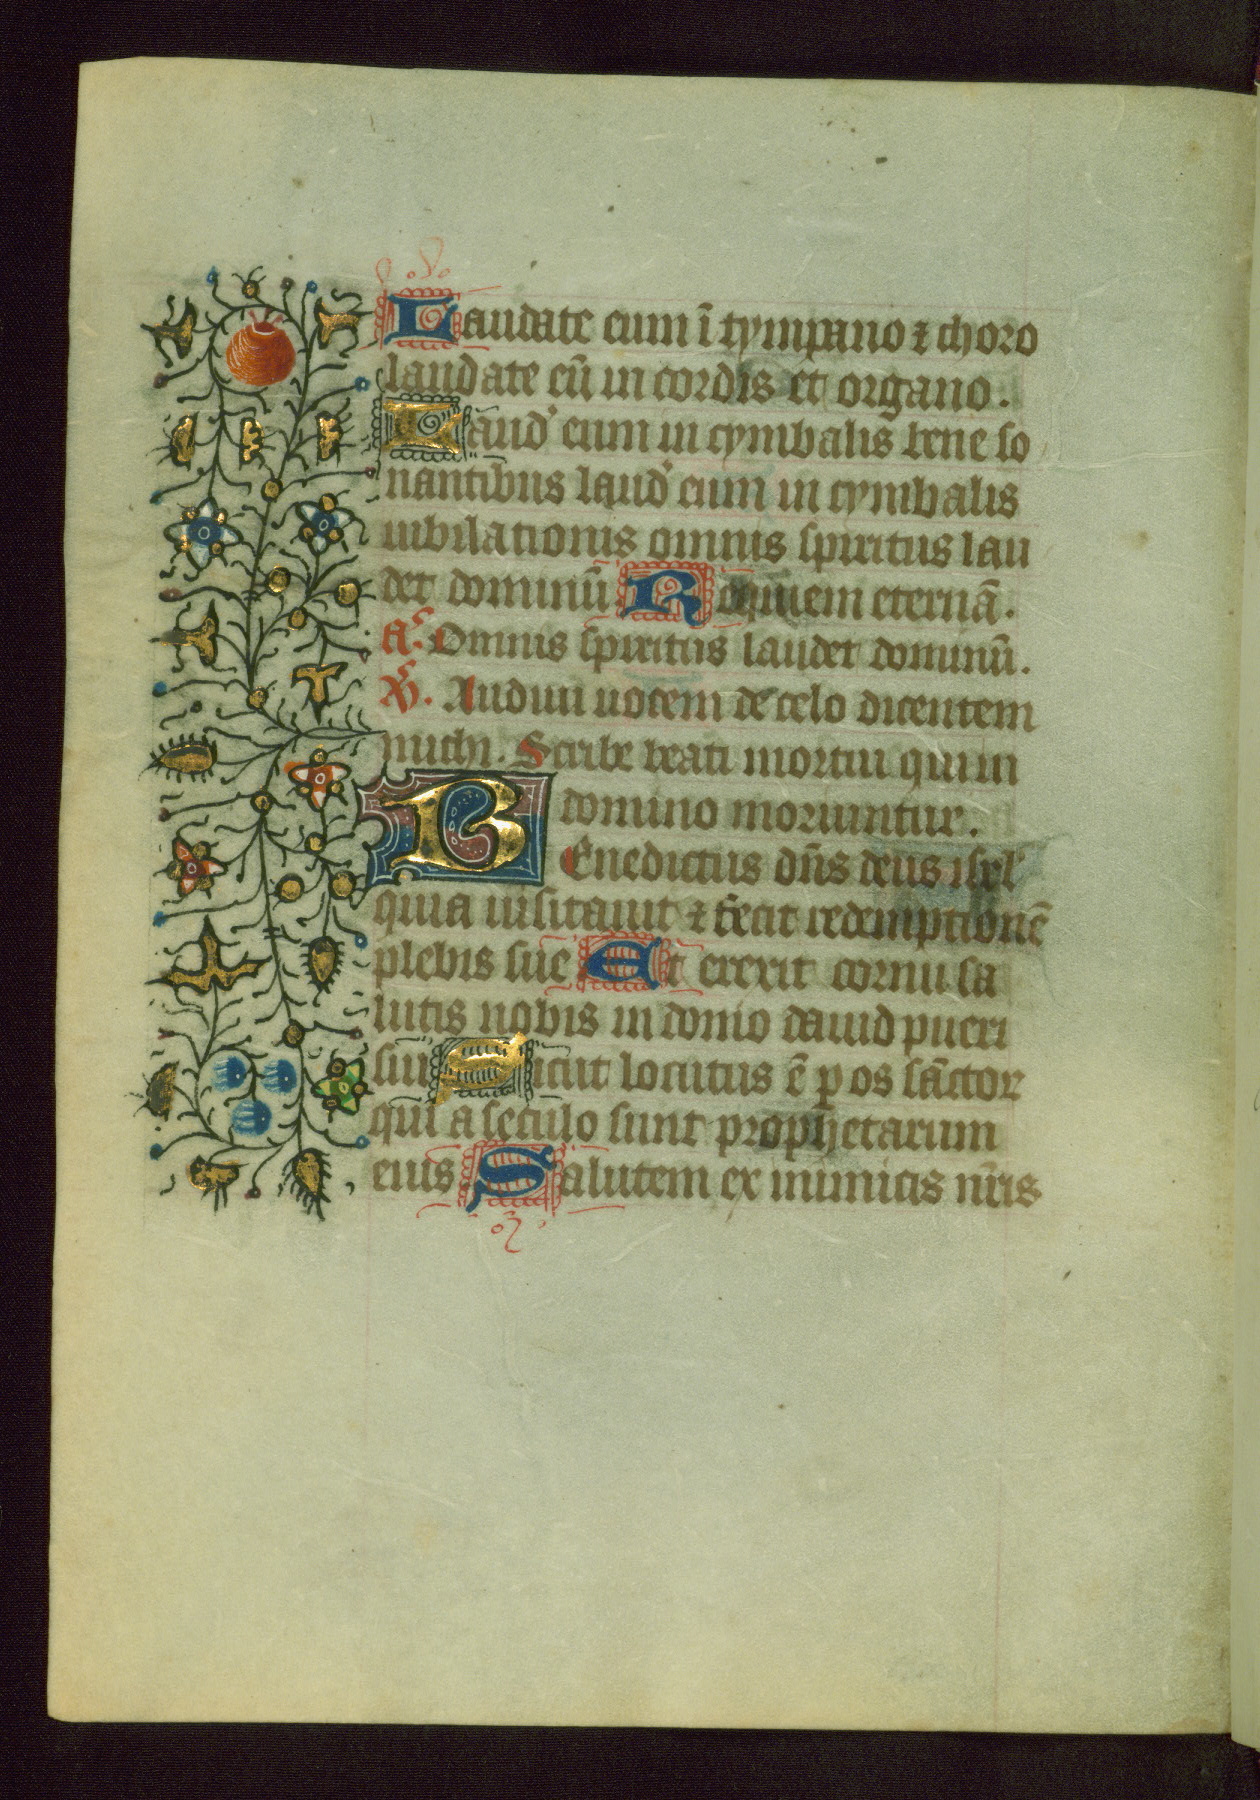 Laudate eum ī tympano ⁊ choro
laudate eū in cordis et organo.
Laud' eum in cymbalis bene so
nantibus laud' eum in cymbalis
iubilationis omnis spiritus lau
det dominū Requiem eternā.
Aᶜ. Omnis spiritus laudet dominū.
V̄. Audiui uocem de celo dicentem
michi. Scribe beati mortui qui in
domino moriuntur.
Benedictus dn̄s deus isrl'
quia uisitauit ⁊ fecit redemptionē
plebis sue Et erexit cornu sa
lutis nobis in domo dauid pueri
sui Sicut locutus ē p os sāctor
qui a seculo sunt prophetarum
eius Salutem ex inimicis nr̄is